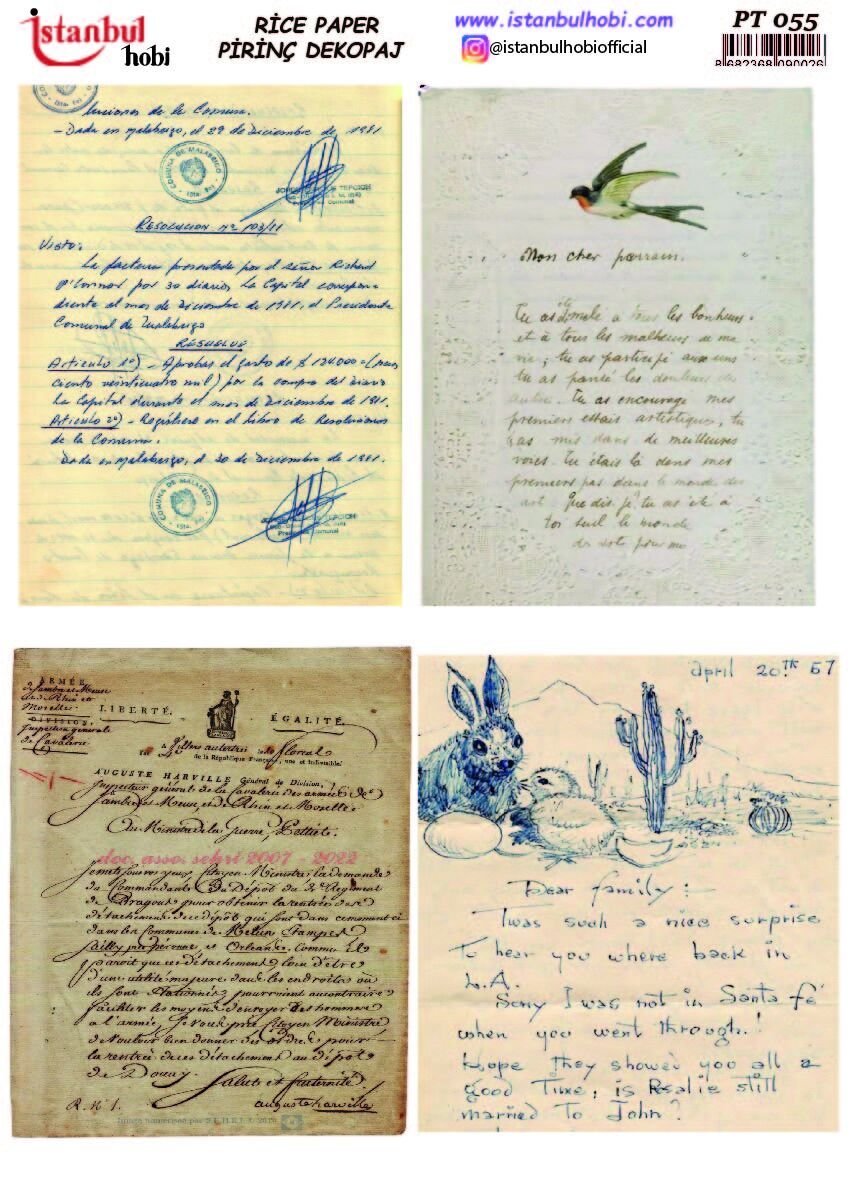 istanbul
hobi
RİCE PAPER
PİRİNÇ DEKOPAJ
www.istanbulhobi.com
@istanbulhobiofficial
PT 055
8 682368 090026
de la Comuna.
- Dada en Malabrigo, el 29 de diciembre de 1981
COMUNA DE MALABRIGO
Presidente Comunal
RESOLUCION Nº 103/81
Visto:
La factura presentada por el señor Richard
O'Connor por 30 diarios La Capital correspon-
diente al mes de diciembre de 1981, el Presidente
Comunal de Malabrigo
RESUELVE
Articulo 1º) - Aprobar el gasto de $ 124.000= (pesos
ciento veinticuatro mil) por la compra del diario
La Capital durante el mes de diciembre de 1981.
Articulo 2º) - Regístrese en el Libro de Resoluciones
de la Comuna.
Dada en Malabrigo, el 30 de diciembre de 1981.
COMUNA DE MALABRIGO
Presidente Comunal
Mon cher parrain.
Tu as été mêlé a tous les bonheurs
et à tous les malheurs de ma
vie; tu as participé aux uns
tu as pansé les douleurs des
autres. Tu as encouragé mes
premiers essais artistiques, tu
as mis dans de meilleures
voies. Tu étais là dans mes
premiers pas dans le monde des
art. Que dis-je, tu as été a
toi seul le monde
des arts pour moi
ARMÉE
de Sambre et Meuse
de Rhin et
Moselle
DIVISION.
Inspection générale
de Cavalerie
LIBERTÉ.
ÉGALITÉ.
floreal
de la République Française, une et indivisible.
AUGUSTE HARVILLE Général de Division,
Inspecteur général de la Cavalerie des armées de
Sambre et Meuse, et de Rhin et Moselle
Au Ministre de la Guerre, Pettiet.
doc. asso. sehri 2007 - 2022
Je mets sous vos yeux, Citoyen Ministre, la demande
du Commandant du Dépôt du 2e Régiment
de Dragons pour obtenir la rentrée des
détachements de ce dépôt qui sont dans ce moment ci
dans les Communes de Melun, Etampes
Sailly, Péronne, et Orléans. Comme il
paroit que ces détachements loin d'etre
d'une utilité majeure dans les endroits où
ils sont stationnés pourroient au contraire
faciliter les moyens d'envoyer des hommes
a l'armée, je vous prie Citoyen Ministre
de vouloir bien donner des ordres pour
la rentrée de ces détachements au dépôt
de Douay.
Salut et fraternité.
auguste harville
R. Nº 1.
Image numérisée par S.E.H.R.I. © 2010
april 20.TH 57
Dear family:
Twas such a nice surprise
To hear you where back in
L.A.
Sorry I was not in Santa fé
when you went through.!
Hope they showed you all a
good Time, is Rosalie still
married To John?